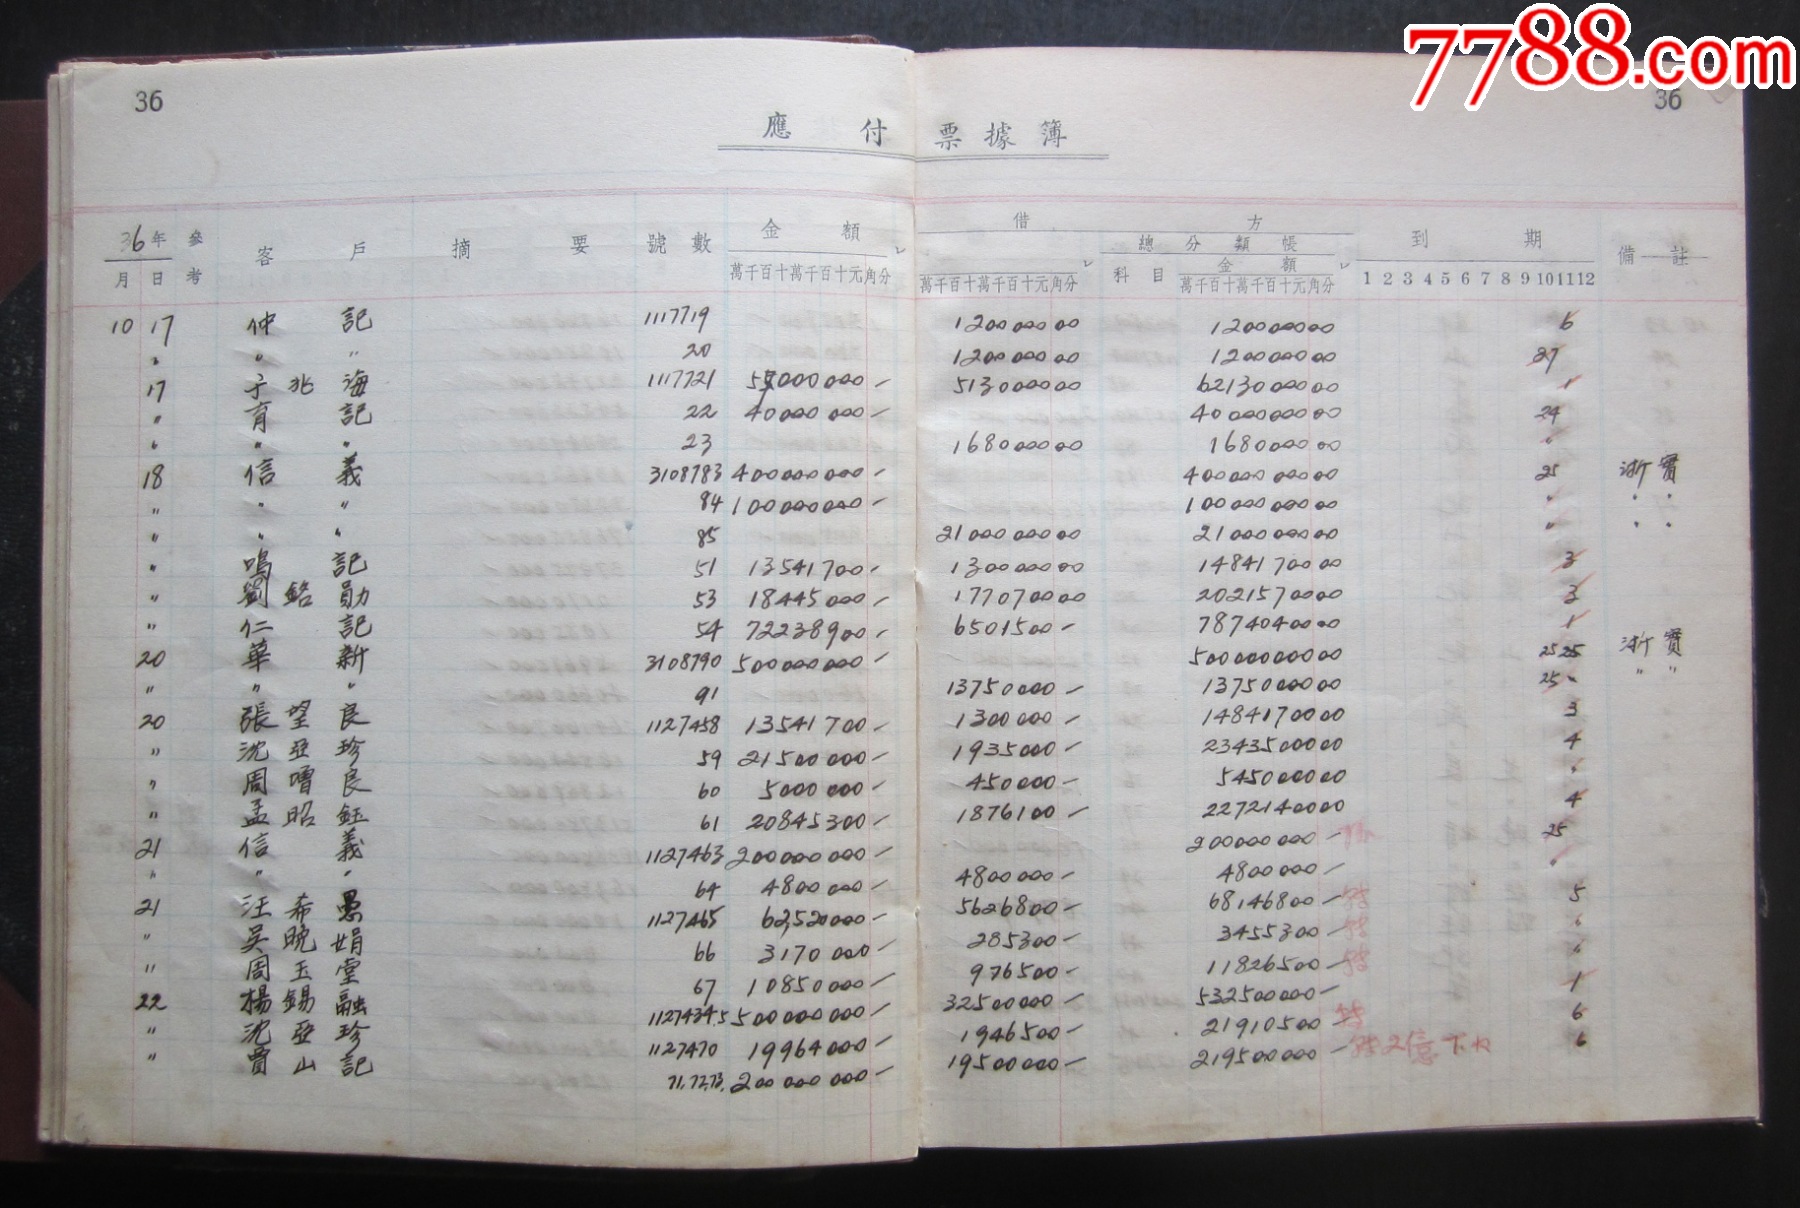 7788.com
36 36
應付票據簿
借 方
36年 參 客戶 摘要 號數 金額 總分類帳 到期 備註
月 日 考 萬千百十萬千百十元角分 萬千百十萬千百十元角分 科目 金額 萬千百十萬千百十元角分 1 2 3 4 5 6 7 8 9 10 11 12
10 17 仲記 1117719 120000000 120000000 6
〃 〃 〃 20 120000000 120000000 27
17 子兆海 1117721 000000 — 513000000 6213000000 1
〃 育記 22 40000000 — 4000000000 24
〃 〃 〃 23 168000000 168000000 〃
18 信義 3108783 400000000 — 40000000000 25 浙實
〃 〃 〃 84 100000000 — 10000000000 〃 〃 〃
〃 〃 〃 85 2100000000 2100000000 〃 〃 〃
〃 鳴記 51 13541700 — 130000000 1484170000 3
〃 劉銘勛 53 18445000 — 177070000 2021570000 3
〃 仁記 54 72238900 — 6501500 — 7874040000 1
20 華新 3108790 500000000 — 50000000000 25 25 浙實
〃 〃 〃 91 13750000 — 1375000000 25 〃 〃 〃
20 張望良 1127458 13541700 — 1300000 — 1484170000 3
〃 沈亞珍 59 21500000 — 1935000 — 2343500000 4
〃 周增良 60 5000000 — 450000 — 545000000 〃
〃 孟昭鈺 61 20845300 — 1876100 — 2272140000 4
21 信義 1127463 200000000 — 200000000 — 25
〃 〃 〃 64 4800000 — 4800000 — 4800000 — 〃
21 汪希愚 1127465 62,520000 — 5626800 — 68146800 — 5
〃 吴曉娟 66 3170000 — 285300 — 3455300 — 〃
〃 周玉堂 67 10850000 — 976500 — 11826500 — 〃
22 楊錫融 500000000 — 32500000 — 532500000 — 1
〃 沈亞珍 1127470 19964000 — 1946500 — 21910500 — 6
〃 賈山記 71,72,73. 200000000 — 19500000 — 219500000 — 2億 6